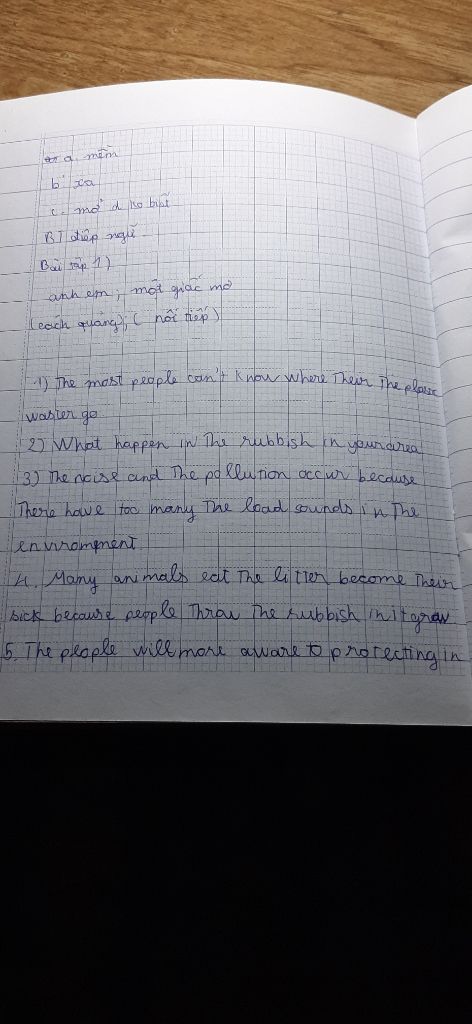 a. mềm
b xa
c. mở d ko biết
BT điệp ngữ
Bài tập 1)
anh em; một giấc mơ
(cách quãng); ( nối tiếp)
1) The most people can't know where Their The plasic
waster go
2) What happen in The rubbish in your area
3) The noise and The pollution occur because
There have too many The load sounds in The
enviromment
4. Many animals eat The litter become Their
sick because people Thraw The rubbish in it
5. The people will more aware to protecting in